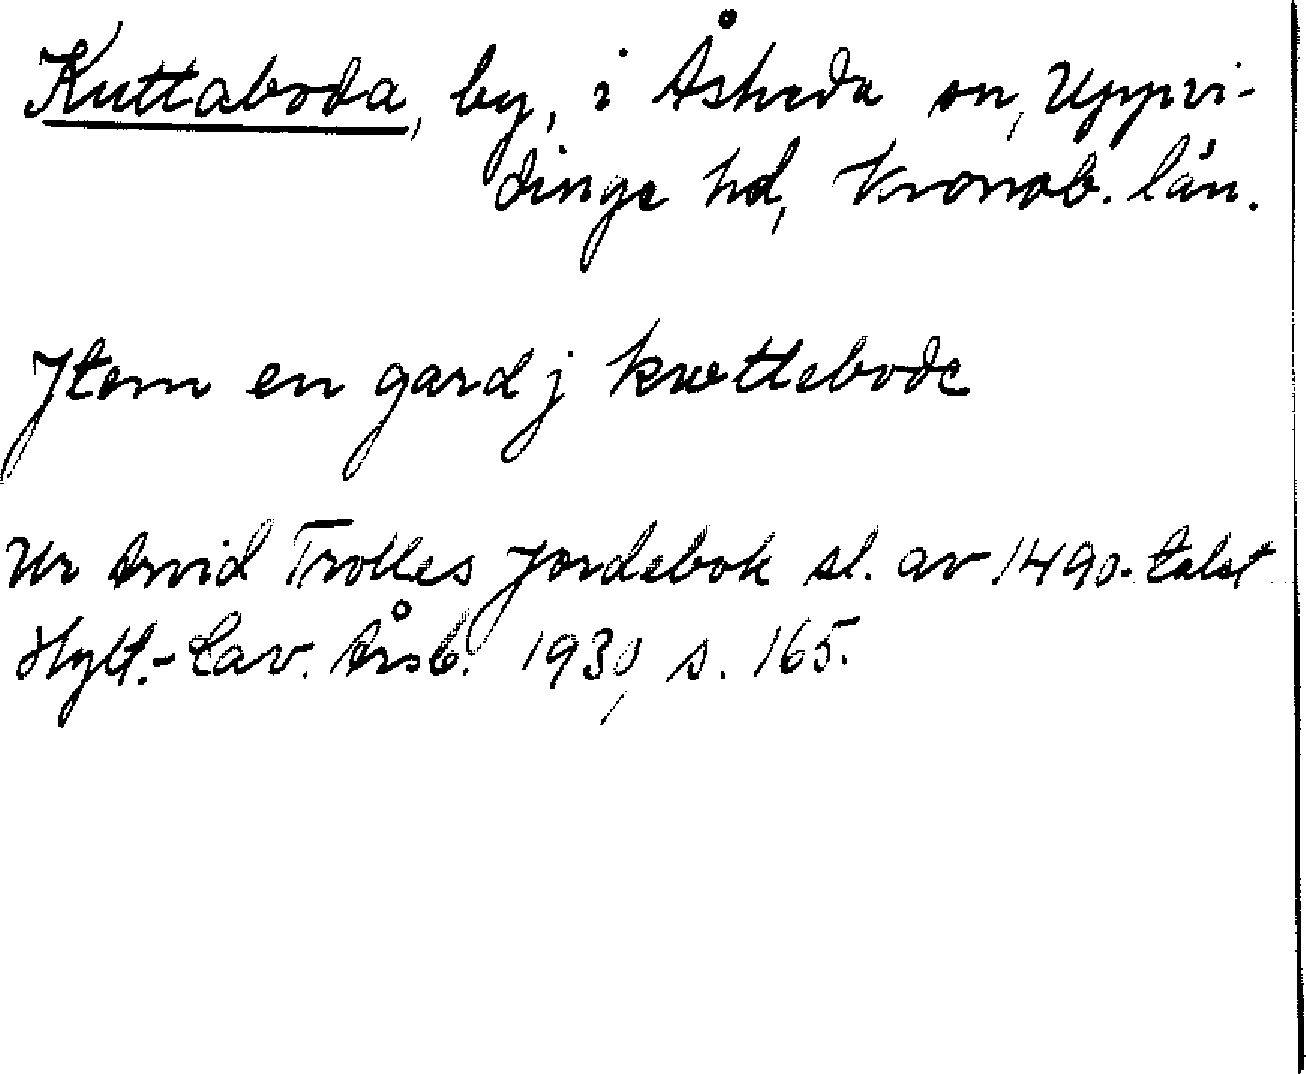 Kuttaboda, by, i Åsheda sn, Uppvi-
dinge hd, Kronob. län.
Jtem en gard j kwttebode
Ur Arvid Trolles jordebok sl. av 1490-talet
Hylt.-Cav. Årsb. 1930, s. 165.